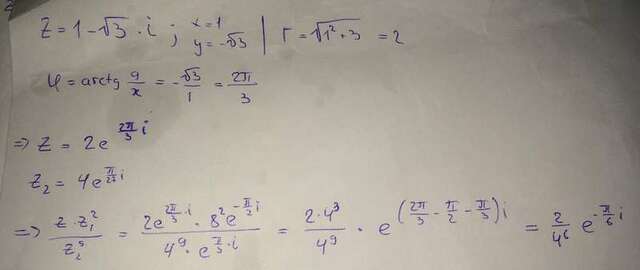 z = 1 - √3 · i ; x = 1 y = -√3 | r = √(1² + 3) = 2
φ = arctg y/x = -√3/1 = 2π/3
=> z = 2e^(2π/3 i)
z₂ = 4e^(π/27 i)
=> (z · z₁²)/z₂⁹ = (2e^(2π/3 · i) · 8²e^(-π/2 i))/(4⁹ · e^(π/3 · i)) = (2·4³)/4⁹ · e^((2π/3 - π/2 - π/3)i) = 2/4⁶ e^(-π/6 i)